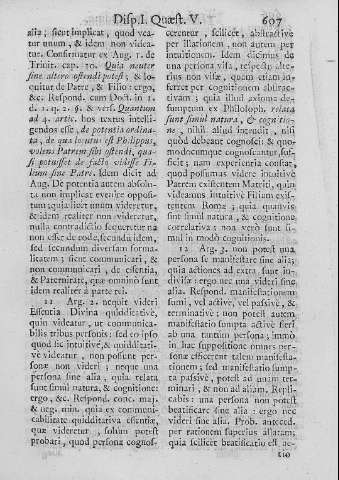 Disp. I. Quæst. V. 607
alia; sicut implicat, quod vea-
tur unum, & idem non videa-
tur. Confirmatur ex Aug. 1. de
Trinit. cap. 30. Quia neuter
sine altero ostendi potest; & lo-
quitur de Patre, & Filio: ergo,
&c. Respond. cum Doct. in 1.
d. 1. q. 2. §. & vers. Quantum
ad 4. artic. hos textus intelli-
gendos esse, de potentia ordina-
ta, de qua locutus est Philippus,
volens Patrem sibi ostendi, qua-
si potuisset de facto vidisse Fi-
lium sine Patre. Idem dicit ad
Aug. De potentia autem absolu-
ta non implicat evenire opposi-
tum; quia licet unum videretur,
& idem realiter non videretur,
nulla contradictio sequeretur na
non esset de eodem, secundum idem,
sed secundum diversam forma-
litatem; sicut communicari, &
non communicari, de essentia,
& Paternitate, quæ omnino sunt
idem realiter à parte rei.
11 Arg. 2. nequit videri
Essentia Divina quidditativè,
quin videatur, ut communica-
bilis tribus personis: sed eo ipso
quod sic intuitivè, & quidditati-
vè videatur, non possent per-
sonæ non videri; neque una
persona sine alia, quia relata
sunt simul natura, & cognitione:
ergo, &c. Respond. conc. maj.
& neg. min. quia ex communi-
cabilitate quidditativa essentiæ,
quæ videretur, solum potest
probari, quod persona cognos-
cerentur, scilicet, abstractivè
per illationem, non autem per
intuitionem. Idem dicimus de
una persona visa, respectu alte-
rius non visæ, quia etiam infer-
retur per cognitionem abstracti-
vam; quia illud axioma de-
sumptum ex Philosoph. relata
sunt simul natura, & cognitio-
ne, nihil aliud intendit, nisi
quod debeant cognosci: & quo-
modocumque cognoscantur suf-
ficit; nam experientia constat,
quod possumus videre intuitivè
Patrem existentem Matriti, quin
videamus intuitivè Filium exis-
tentem Romæ; quia quamvis
sint simul natura, & cognitione
correlativa; non verò sunt si-
mul in modo cognitionis.
12 Arg. 3. non potest una
persona se manifestare sine alia;
quia actiones ad extra sunt indi-
divisæ: ergo nec una videri sine
alia. Respond. manifestationem
sumi, vel activè, vel passivè, &
terminativè; non potest autem
manifestatio sumpta activè fieri
ab una tantum persona; immò
in hac suppositione omnes per-
sonæ efficerent talem manifesta-
tionem; sed manifestatio sump-
ta passivè, potest ad unam ter-
minari, & non ad aliam. Repli-
cabis: una persona non potest
beatificare sine alia: ergo nec
videri sine alia. Prob. anteced.
per rationem superius allatam;
quia scilicet beatificatio est ac-
tio